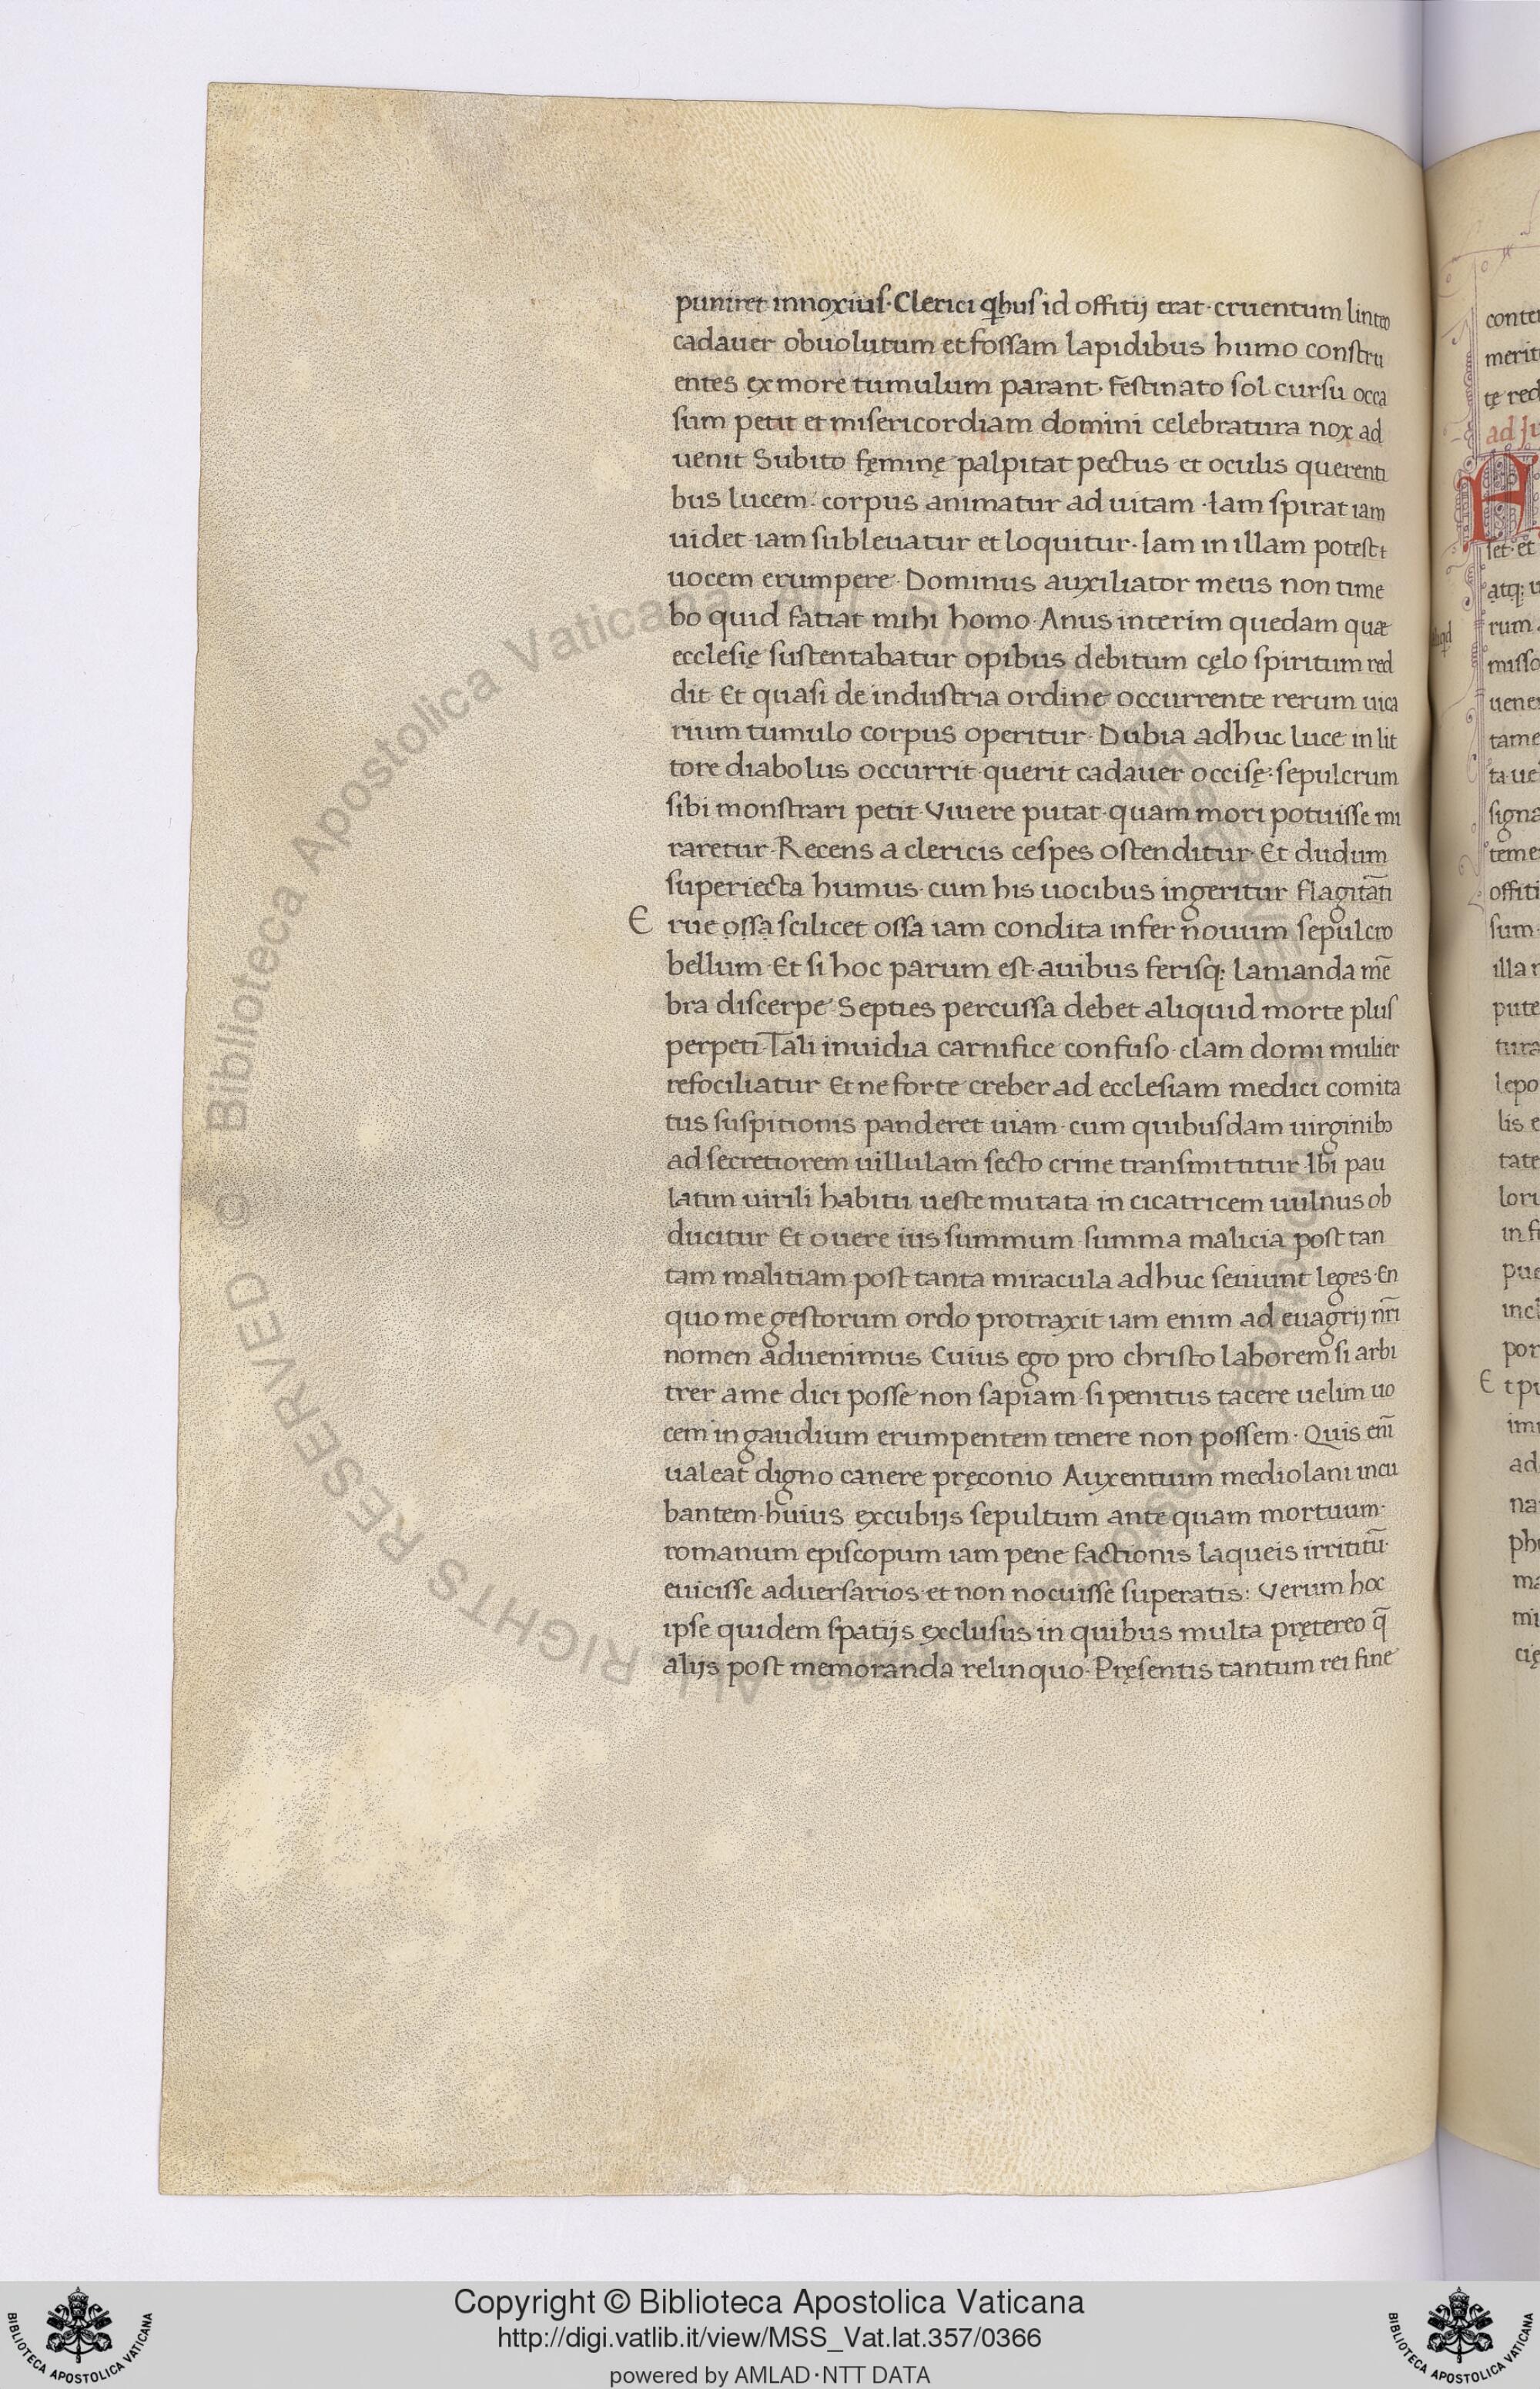 puniret innoxius· Clerici qbus id offitij erat· cruentum linteo
cadauer obuolutum et fossam lapidibus humo constru
entes ex more tumulum parant· Festinato sol cursu occa
sum petit et misericordiam domini celebratura nox ad
uenit Subito fęminę palpitat pectus et oculis querenti
bus lucem· corpus animatur ad uitam· Iam spirat iam
uidet iam subleuatur et loquitur· Iam in illam potest
uocem erumpere· Dominus auxiliator meus non time
bo quid fatiat mihi homo· Anus interim quedam quæ
ecclesię sustentabatur opibus debitum cęlo spiritum red
dit· Et quasi de industria ordine occurrente rerum uica
rium tumulo corpus operitur· Dubia adhuc luce in lit
tore diabolus occurrit· querit cadauer occisę· sepulcrum
sibi monstrari petit· Viuere putat· quam mori potuisse mi
raretur· Recens a clericis cespes ostenditur· Et dudum
superiecta humus· cum his uocibus ingeritur flagitāti
E rue ossa scilicet ossa iam condita infer nouum sepulcro
bellum· Et si hoc parum est· auibus ferisq; lanianda mē
bra discerpe· Septies percussa debet aliquid morte plus
perpeti· Tali inuidia carnifice confuso· clam domi mulier
refociliatur Et ne forte creber ad ecclesiam medici comita
tus suspitionis panderet uiam· cum quibusdam uirginibꝰ
ad secretiorem uillulam secto crine transmittitur· Ibi pau
latim uirili habitu ueste mutata in cicatricem uulnus ob
ducitur Et o uere ius summum· summa malicia post tan
tam malitiam· post tanta miracula adhuc seuiunt leges· En
quo me gestorum ordo protraxit iam enim ad euagrij nr̄i
nomen aduenimus Cuius ego pro christo laborem si arbi
trer a me dici posse non sapiam· si penitus tacere uelim uo
cem in gaudium erumpentem tenere non possem· Quis em̄
ualeat digno canere pręconio Auxentium mediolani incu
bantem· huius excubijs sepultum ante quam mortuum·
romanum episcopum iam pene factionis laqueis irrititū·
euicisse aduersarios· et non nocuisse superatis: Verum hoc
ipse quidem spatijs exclusus in quibus multa pretereo q̄
alijs post memoranda relinquo· Pręsentis tantum rei fine
conte
merit
tę red
ad
set· et
atq; u
rum
misso
uene
tame
ta ue
signa
teme
offiti
sum
illa
pute
tura
lepo
lis e
tate
loru
in fi
pue
incl
por
E t pu
im
ad
na
ph
ma
mi
cię
© Biblioteca Apostolica Vaticana
ALL RIGHTS RESERVED
Copyright © Biblioteca Apostolica Vaticana
http://digi.vatlib.it/view/MSS_Vat.lat.357/0366
powered by AMLAD·NTT DATA
BIBLIOTECA APOSTOLICA VATICANA
BIBLIOTECA APOSTOLICA VATICANA